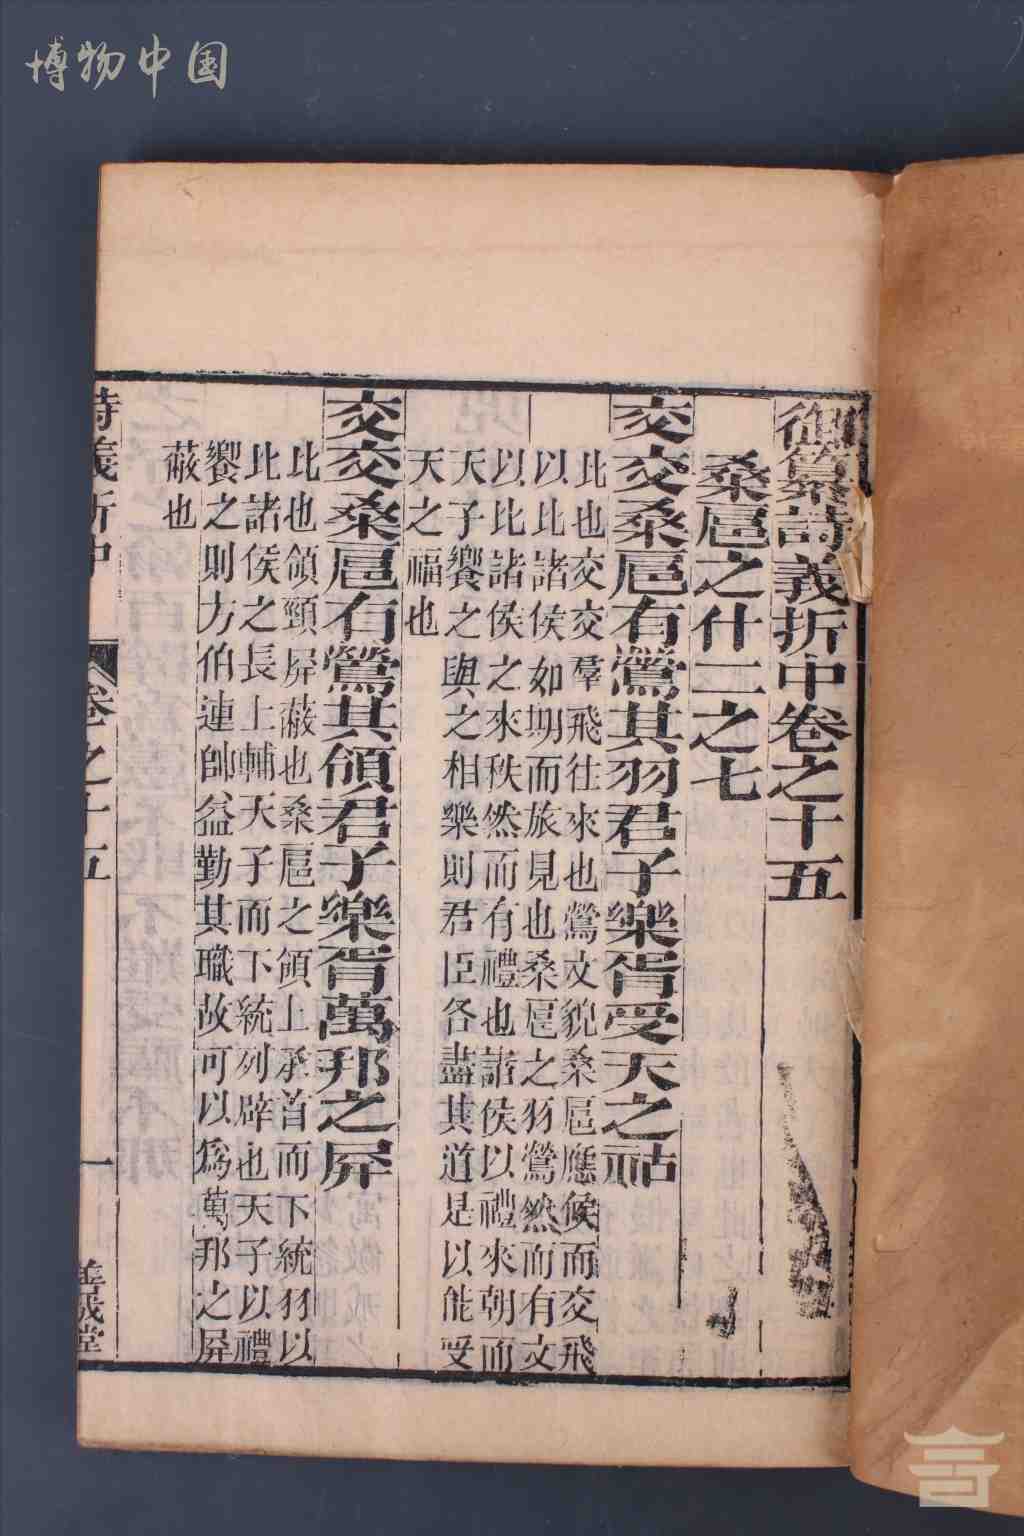 博物中国
御纂詩義折中卷之十五
桑扈之什二之七
交交桑扈有鶯其羽君子樂胥受天之祜
比也交交羣飛往來也鶯文貌桑扈應候而交飛
以比諸侯如期而旅見也桑扈之羽鶯然而有文
以比諸侯之來秩然而有禮也諸侯以禮來朝而
天子饗之與之相樂則君臣各盡其道是以能受
天之福也
交交桑扈有鶯其領君子樂胥萬邦之屏
比也領頸屏蔽也桑扈之領上承首而下統羽以
比諸侯之長上輔天子而下統列辟也天子以禮
饗之則方伯連帥益勤其職故可以爲萬邦之屏
蔽也
詩義折中 卷之十五 一 善成堂